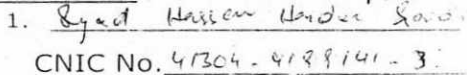 1. Syed Hassan Haider
CNIC No. 41304-4189141-3